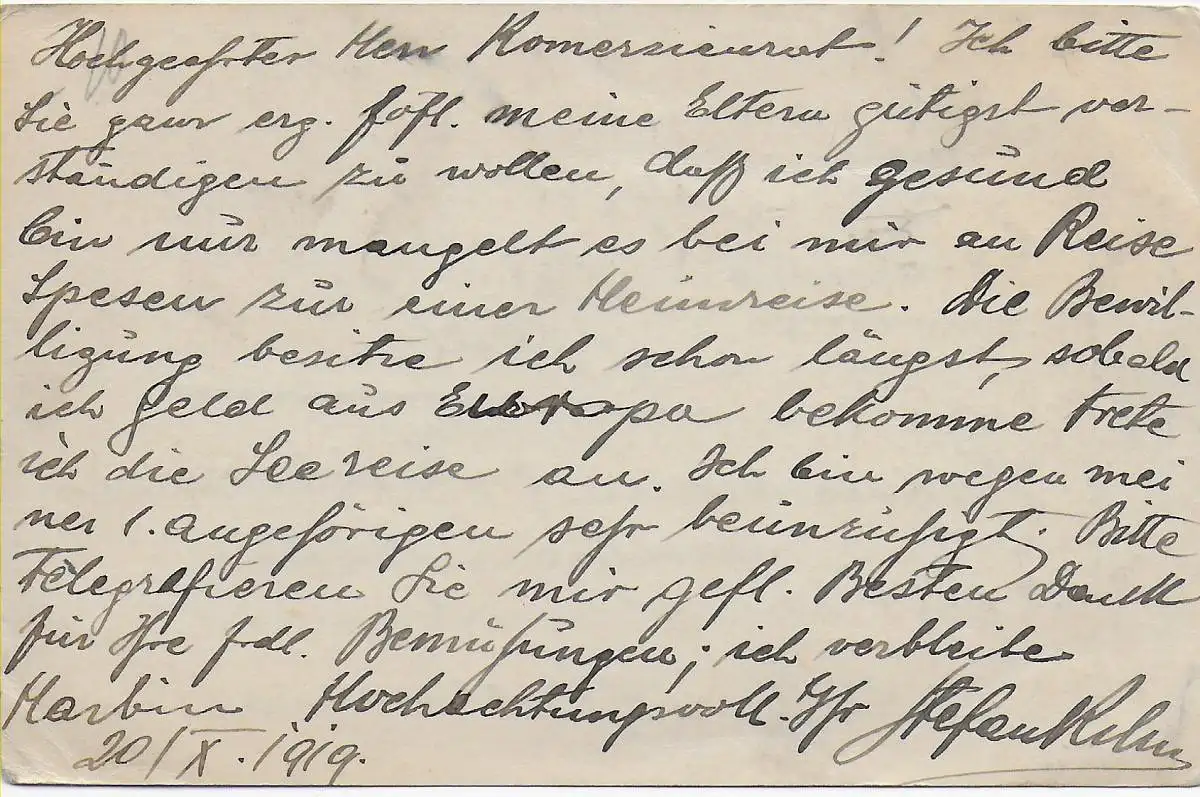 Hochgeehrter Herr Komerzienrat! Ich bitte
Sie ganz erg. höfl. meine Eltern gütigst ver-
ständigen zu wollen, daß ich gesund
bin nur mangelt es bei mir an Reise
Spesen zur einer Heimreise. Die Bewil-
ligung besitze ich schon längst, sobald
ich Geld aus Europa bekomme trete
ich die Seereise an. Ich bin wegen mei
ner l. Angehörigen sehr beunruhigt. Bitte
Telegrafieren Sie mir gefl. Besten Dank
für Ihre frdl. Bemühungen; ich verbleibe
Harbin Hochachtungsvoll. Ihr Stefan
20/X. 1919.